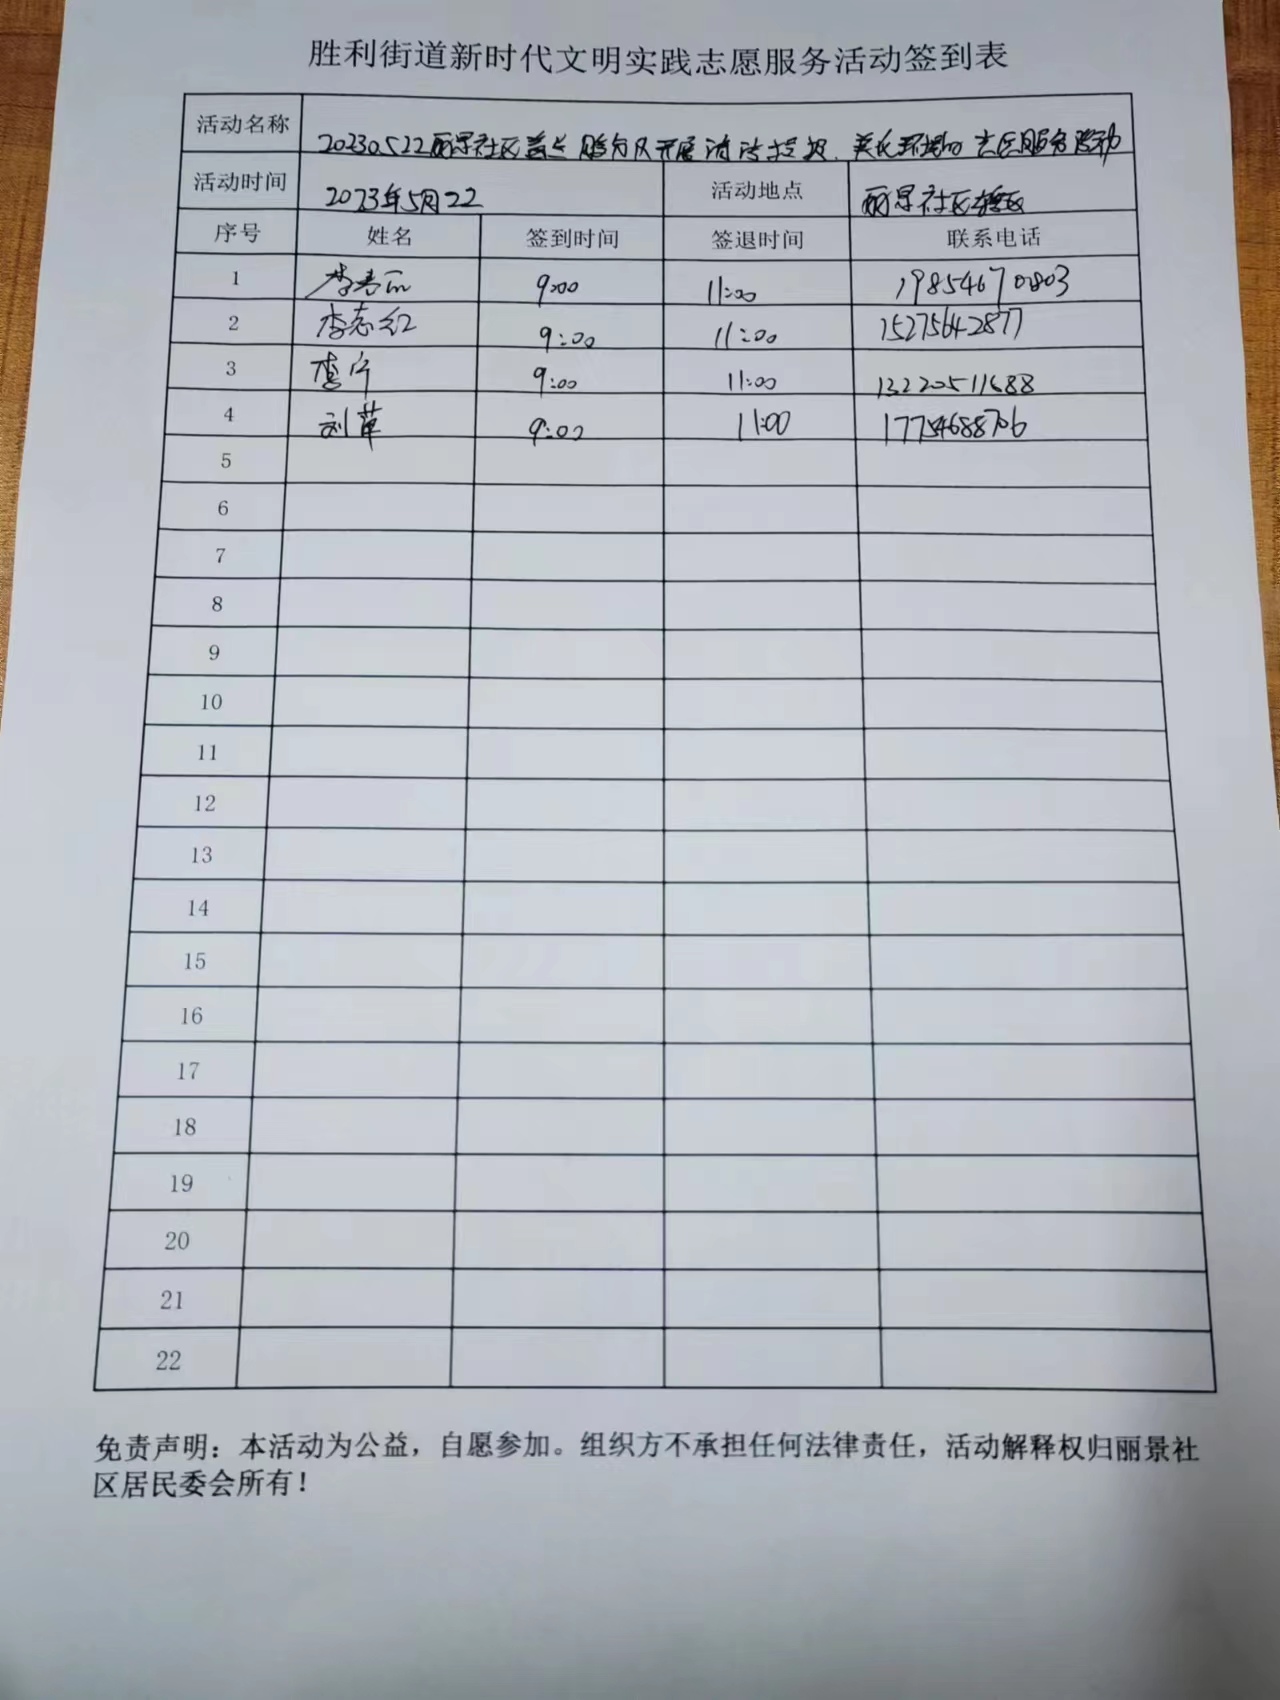 胜利街道新时代文明实践志愿服务活动签到表
活动名称 20230522丽景社区 开展清洁 美化环境的志愿服务活动
活动时间 2023年5月22 活动地点 丽景社区辖区
序号 姓名 签到时间 签退时间 联系电话
1 李秀丽 9:00 11:00 19854670803
2 李志红 9:00 11:00 15275642877
3 李宁 9:00 11:00 13220511688
4 刘苹 9:00 11:00 17754688706
5
6
7
8
9
10
11
12
13
14
15
16
17
18
19
20
21
22
免责声明：本活动为公益，自愿参加。组织方不承担任何法律责任，活动解释权归丽景社
区居民委会所有！